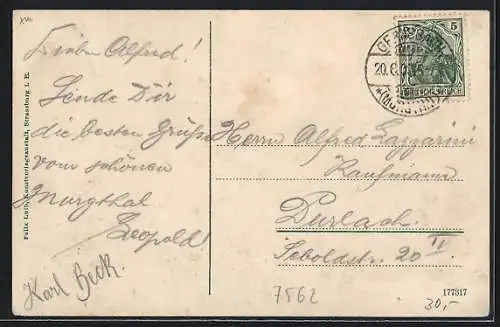 Lieber Alfred!
Sende Dir
die besten Grüße
vom schönen
Murgthal
Leopold!
Karl Beck.
Herrn Alfred Lazzarini
Kaufmann
Durlach.
Seboldstr. 20 II
7562
177317
30,-
Felix Luib, Kunstverlagsanstalt, Strassburg i. E.
5
GERNSBACH
20.6.
(MURGTAL)